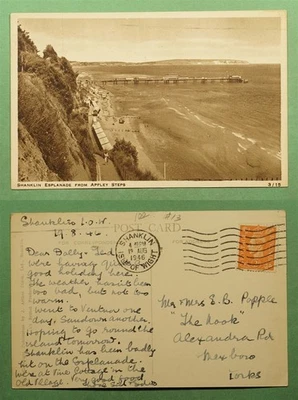 SHANKLIN ESPLANADE FROM APPLEY STEPS
3/15
Shanklin I.O.W.
19.8.46.
POST CARD
SHANKLIN
ISLE OF WIGHT
19 AUG
1946
Dear Dolly & Sid
were having a
good holiday here.
The weather hasn't been
too bad, but not so
warm.
Went to Ventnor one
day, Sandown another.
Hoping to go round the
island tomorrow.
Shanklin has been badly
hit on the Esplanade.
Were at a cottage in the
Old Village. good food
Mr & Mrs S.G. Popple
"The Nook"
Alexandra Rd
Mexboro
Yorks